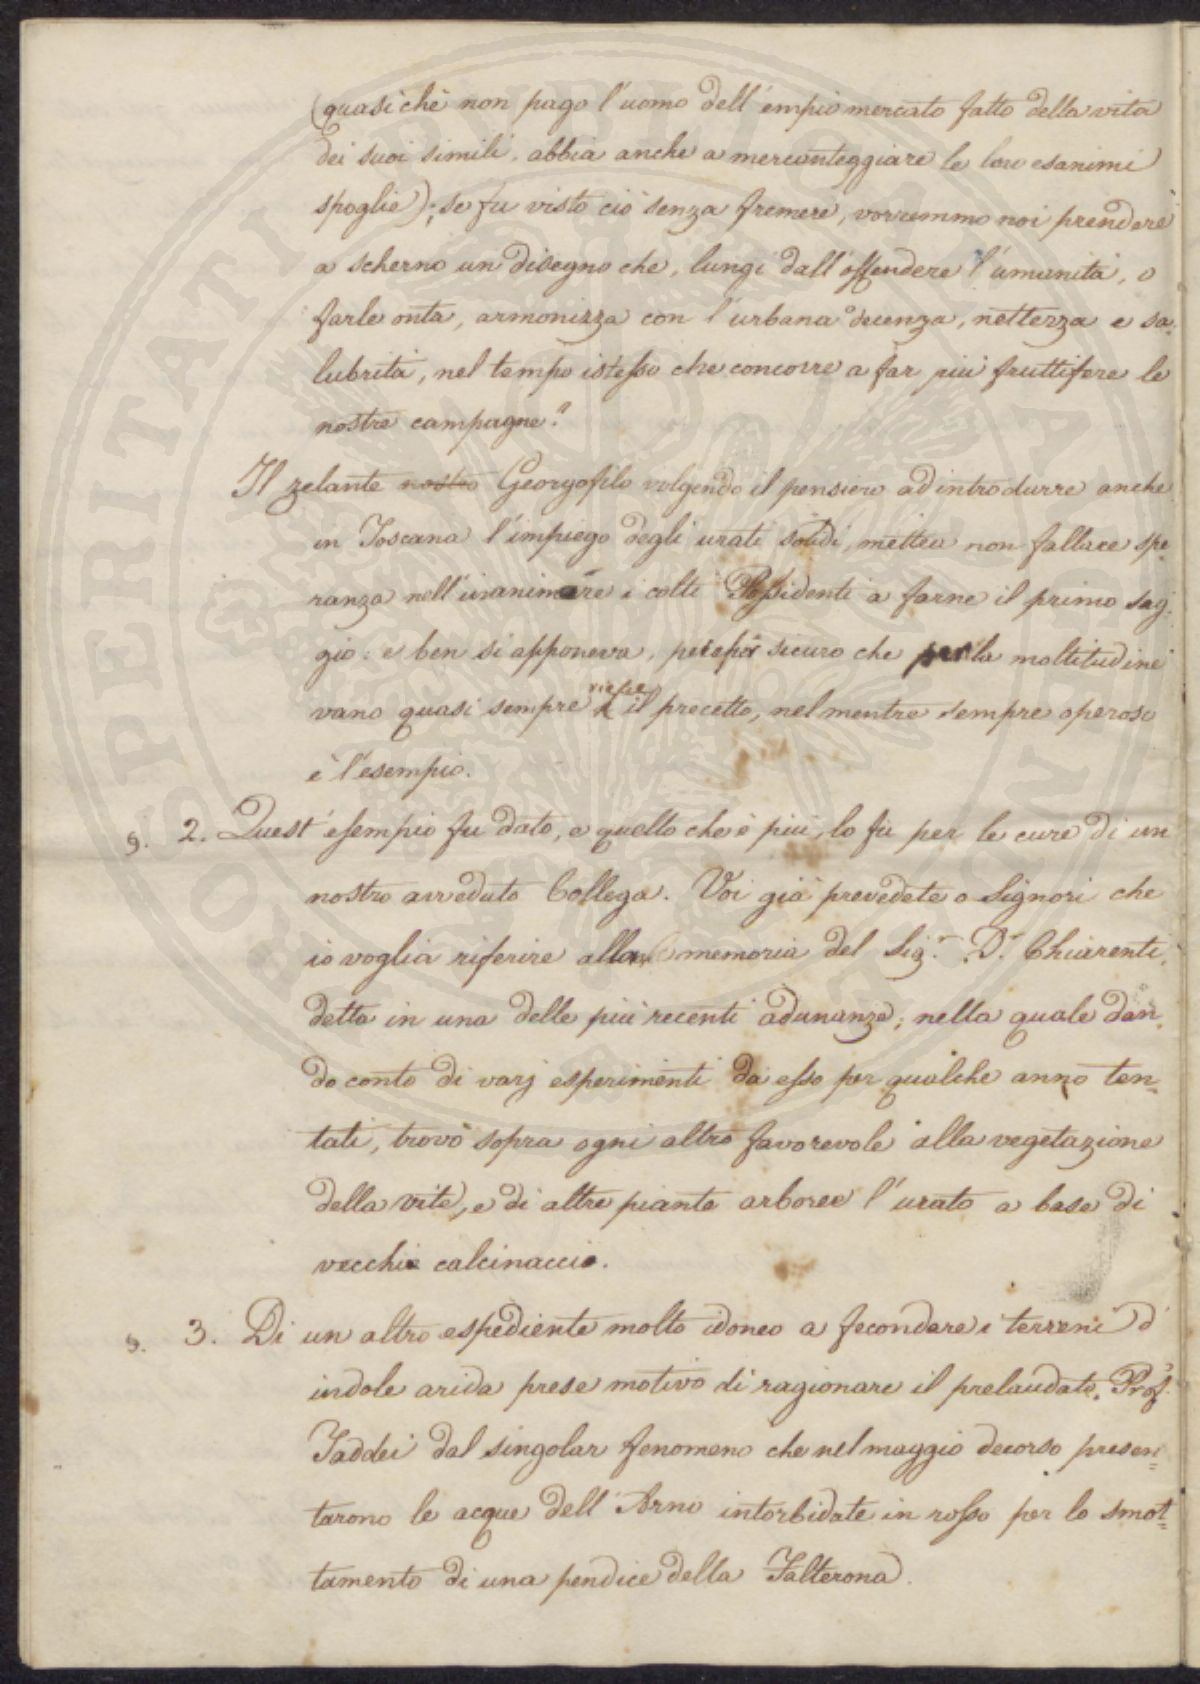 (quasichè non pago l'uomo dell'empio mercato fatto della vita
dei suoi simili, abbia anche a mercanteggiare le loro esanimi
spoglie); se fu visto ciò senza fremere, vorremmo noi prendere
a scherno un disegno che, lungi dall'offendere l'umanità, o
farle onta, armonizza con l'urbana decenza, nettezza e sa-
lubrità, nel tempo istesso che concorre a far più fruttifere le
nostre campagne."
Il zelante nostro Georgofilo volgendo il pensiero ad introdurre anche
in Toscana l'impiego degli urati solidi, mettea non fallace spe-
ranza nell'inanimare i colti Possidenti a farne il primo sag-
gio: e ben si apponeva, sicuro che per la moltitudine
vano quasi sempre riesce il precetto, nel mentre sempre operoso
è l'esempio.
§. 2. Quest'esempio fu dato, e quello che è più, lo fù per le cure di un
nostro avveduto Collega. Voi già prevedete o Signori che
io voglia riferire alla memoria del Sig.r D.r Chiarenti,
detta in una delle più recenti adunanze; nella quale dan-
do conto di varj esperimenti da esso per qualche anno ten-
tati, trovò sopra ogni altro favorevole alla vegetazione
della vite, e di altre piante arboree l'urato a base di
vecchio calcinaccio.
§. 3. Di un altro espediente molto idoneo a fecondare i terreni d'
indole arida prese motivo di ragionare il prelaudato Prof.
Taddei dal singolar fenomeno che nel maggio decorso presen-
tarono le acque dell'Arno intorbidate in rosso per lo smot-
tamento di una pendice della Falterona.
PROSPERITATI PUBLICAE AUGENDAE